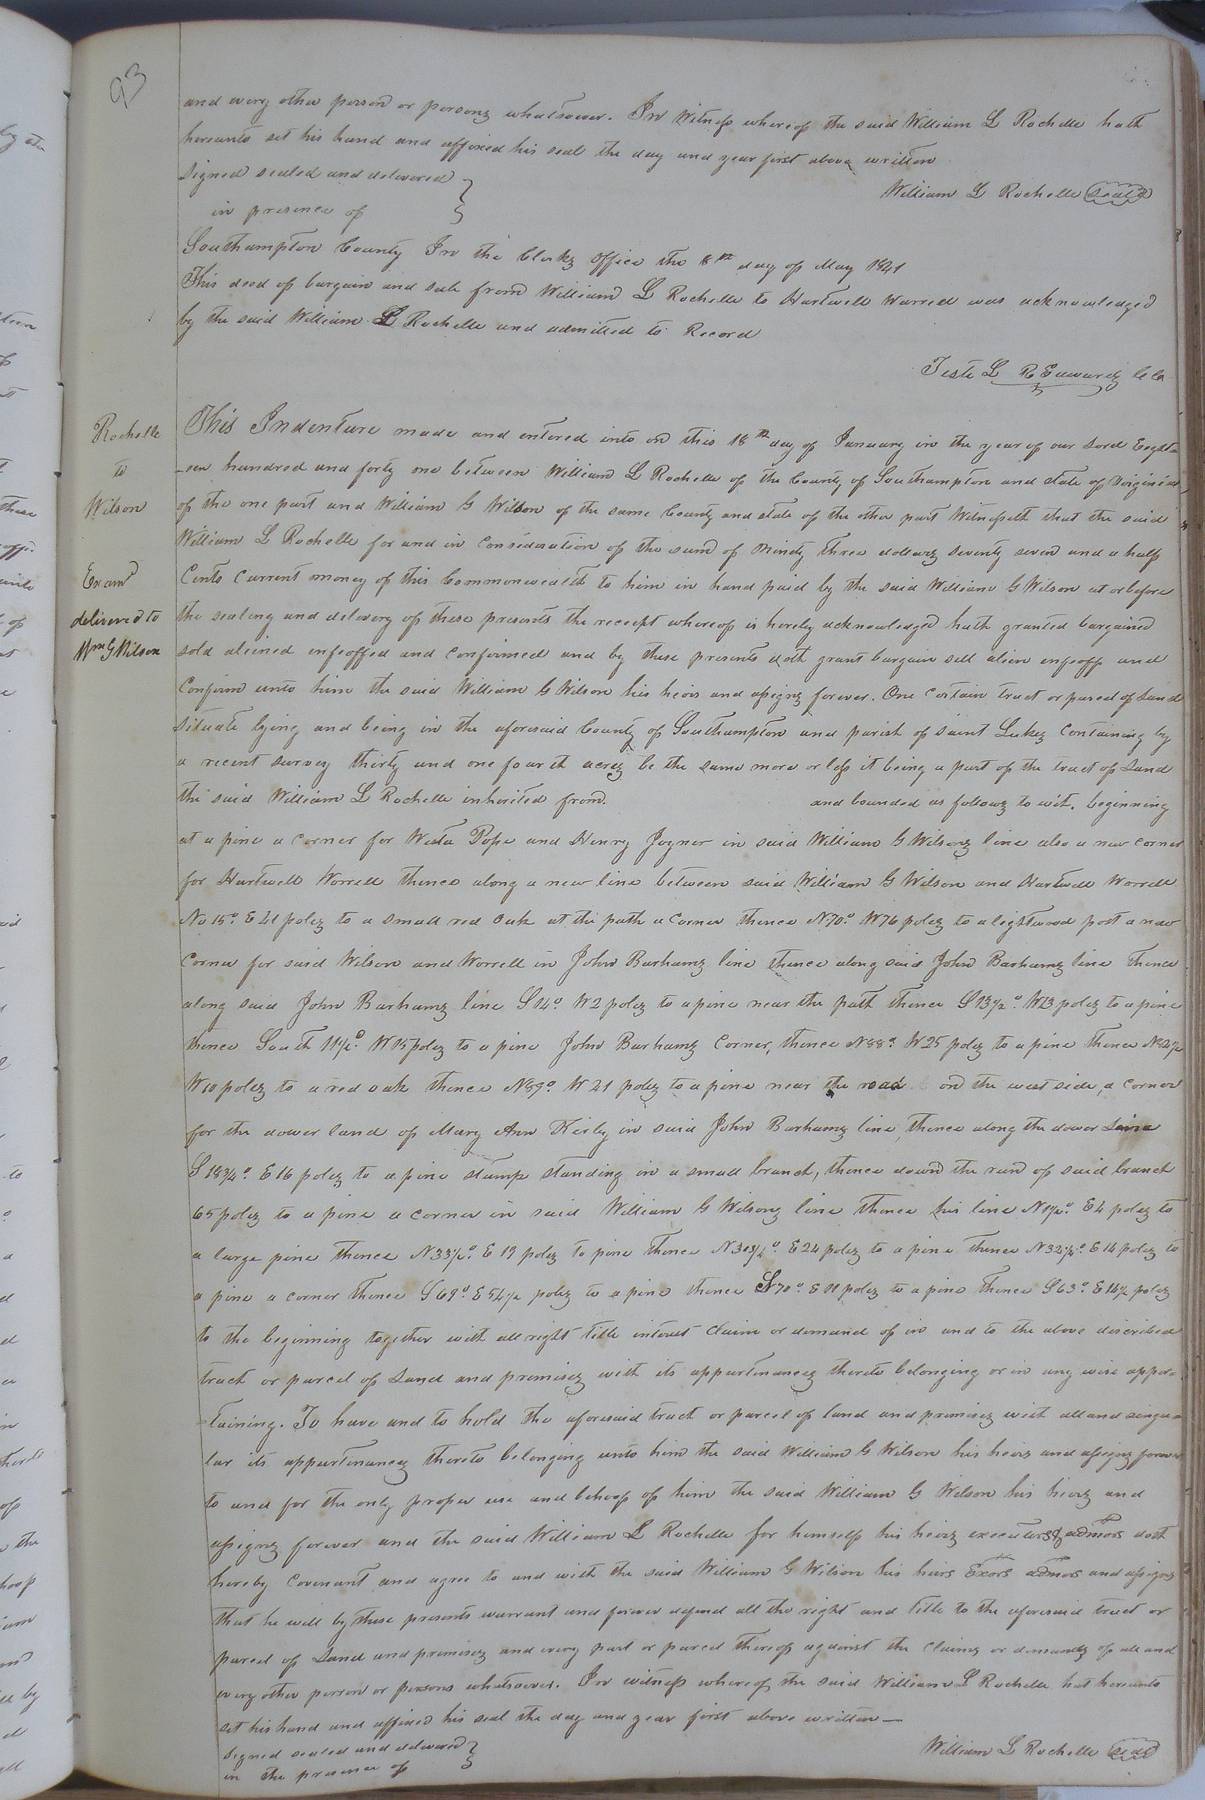 93
and every other person or persons whatsoever. In Witness whereof the said William L Rochelle hath
hereunto set his hand and affixed his seal the day and year first above written
Signed sealed and delivered }
in presence of
William L Rochelle (seal)
Southampton County In the Clerks Office the 8th day of May 1841
This deed of bargain and sale from William L Rochelle to Hartwell Worrell was acknowledged
by the said William L Rochelle and admitted to Record
Teste L R Edwards C C
Rochelle
to
Wilson
Examd
delivered to
Wm G Wilson
This Indenture made and entered into on this 18th day of January in the year of our Lord Eight
-een hundred and forty one between William L Rochelle of the County of Southampton and state of Virginia
of the one part and William G Wilson of the same County and state of the other part Witnesseth that the said
William L Rochelle for and in Consideration of the sum of Ninety three dollars Seventy seven and a half
Cents Current money of this Commonwealth to him in hand paid by the said William G Wilson at or before
the sealing and delivery of these presents the receipt whereof is hereby acknowledged hath granted bargained
sold aliened infeoffed and Confirmed and by these presents doth grant bargain sell alien enfeoff and
Confirm unto him the said William G Wilson his heirs and assigns forever. One Certain tract or parcel of Land
situate lying and being in the aforesaid County of Southampton and parish of saint Lukes Containing by
a recent survey thirty and one fourth acres be the same more or less it being a part of the tract of Land
the said William L Rochelle inherited from. and bounded as follows to wit. beginning
at a pine a corner for Pope and Henry Joyner in said William G Wilsons line also a new corner
for Hartwell Worrell thence along a new line between said William G Wilson and Hartwell Worrell
No 15° E 41 poles to a small red oak at the path a Corner thence N70° W76 poles to a lightwood post a new
Corner for said Wilson and Worrell in John Barhams line thence along said John Barhams line thence
along said John Barhams line S14° W2 poles to a pine near the path thence S13½° W13 poles to a pine
thence South 11½° W15 poles to a pine John Barhams Corner, thence N88° W25 poles to a pine thence N82½
W10 poles to a red oak thence N89° W 21 poles to a pine near the road on the west side, a corner
for the dower land of Mary Ann Kirby in said John Barhams line, thence along the dower Line
S18¾° E16 poles to a pine stump standing in a small branch, thence down the run of said branch
65 poles to a pine a corner in said William G Wilsons line thence his line E4 poles to
a large pine thence N33½° E 19 poles to pine thence E24 poles to a pine thence N32½° E14 poles to
a pine a corner thence S69° E54½ poles to a pine thence S70° E11 poles to a pine thence S63° E14½ poles
to the beginning together with all right title interest claim or demand of in and to the above described
tract or parcel of Land and premises with its appurtenances thereto belonging or in any wise apper-
-taining. To have and to hold the aforesaid tract or parcel of land and premises with all and singu-
lar its appurtenances thereto belonging unto him the said William G Wilson his heirs and assigns forever
to and for the only proper use and behoof of him the said William G Wilson his heirs and
assigns forever and the said William L Rochelle for himself his heirs executors & admors doth
hereby Covenant and agree to and with the said William G Wilson his heirs Exors admors and assigns
that he will by these presents warrant and forever defend all the right and title to the aforesaid tract or
parcel of Land and premises and every part or parcel thereof against the claims or demands of all and
every other person or persons whatsoever. In witness whereof the said William L Rochelle hath hereunto
set his hand and affixed his seal the day and year first above written—
Signed sealed and delivered }
in the presence of
William L Rochelle (seal)